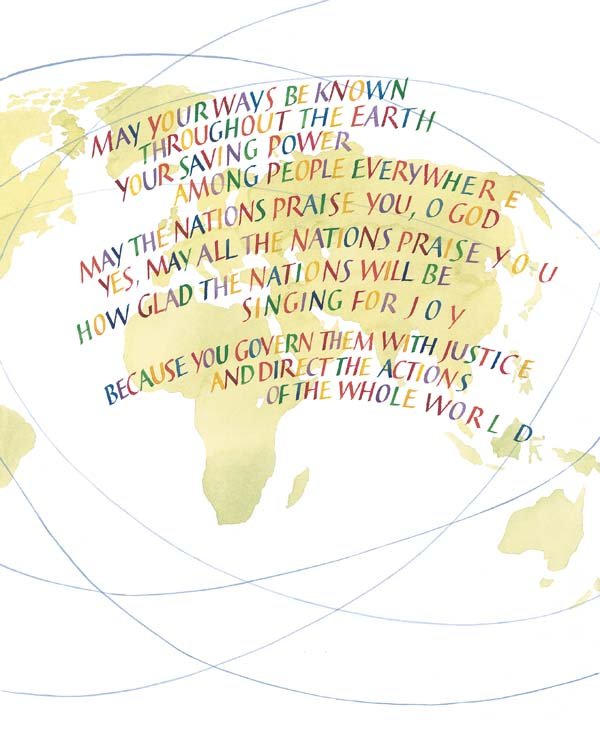 MAY YOUR WAYS BE KNOWN
THROUGHOUT THE EARTH
YOUR SAVING POWER
AMONG PEOPLE EVERYWHERE
MAY THE NATIONS PRAISE YOU, O GOD
YES, MAY ALL THE NATIONS PRAISE YOU
HOW GLAD THE NATIONS WILL BE
SINGING FOR JOY
BECAUSE YOU GOVERN THEM WITH JUSTICE
AND DIRECT THE ACTIONS
OF THE WHOLE WORLD